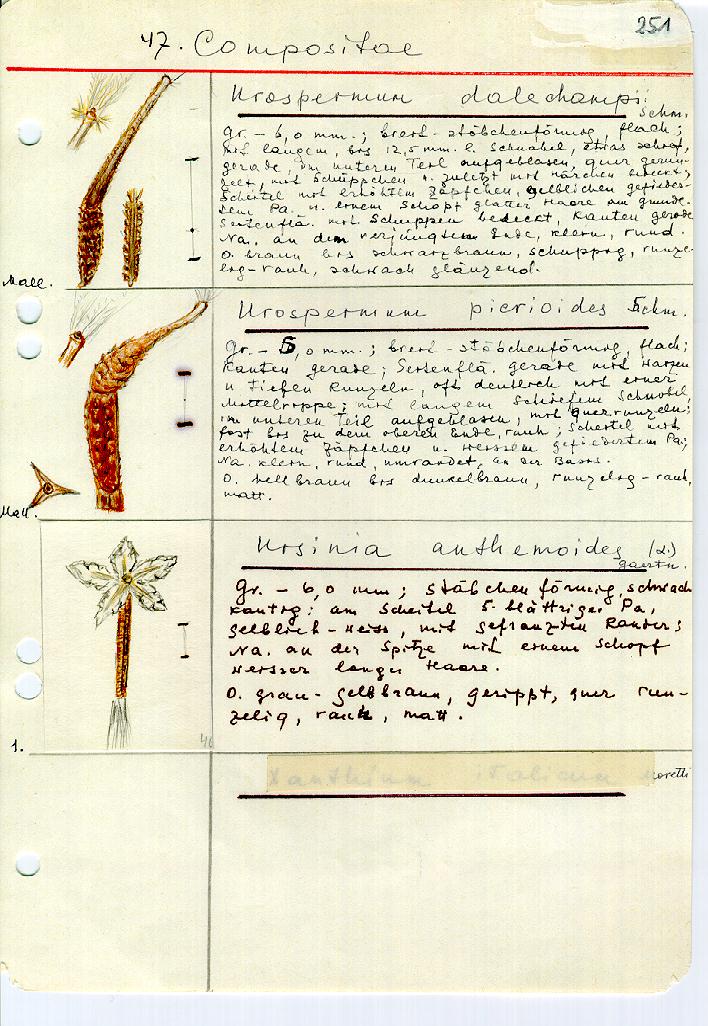 251
47. Compositae
Urospermum dalechampii
Schm.
gr. – 6,0 mm.; breit-stäbchenförmig, flach;
mit langem, bis 12,5 mm. l. Schnabel, etwas
gerade, im unteren Teil aufgeblasen, quer gerun-
zelt, mit Schüppchen u. zuletzt mit Härchen bedeckt;
Scheitel mit erhöhtem Zäpfchen, gelblichen gefieder-
tem Pa. u. einem Schopf glatter Haare am Grunde.
Seitenflä. mit Schuppen bedeckt, Kanten gerade
Na. an dem verjüngten Ende, klein, rund.
O. braun bis schwarzbraun, schuppig, runze-
lig-rauh, schwach glänzend.
Mall.
Urospermum picrioides Schm.
gr. – 5,0 mm.; breit-stäbchenförmig, flach;
Kanten gerade; Seitenflä. gerade mit Warzen
u tiefen Runzeln, oft deutlich mit einer
Mittelrippe; mit langem schiefem Schnabel,
im unteren Teil aufgeblasen, mit Querrunzeln;
fast bis zu dem oberen Ende, rauh; Scheitel mit
erhöhtem Zäpfchen u. weissem gefiedertem Pa;
Na. klein, rund, umrandet, an der Basis.
O. hellbraun bis dunkelbraun, runzelig-rauh,
matt.
Mall.
Ursinia anthemoides (L.)
gaertn.
gr. – 6,0 mm; stäbchenförmig, schwach
kantig; am Scheitel 5-blättriger Pa,
gelblich-weiss, mit gefranzten Rander;
Na. an der Spitze mit einem Schopf
weisser langer Haare.
O. grau-gelbbraun, gerippt, quer run-
zelig, rauh, matt.
1.
46
Xanthium italicum moretti